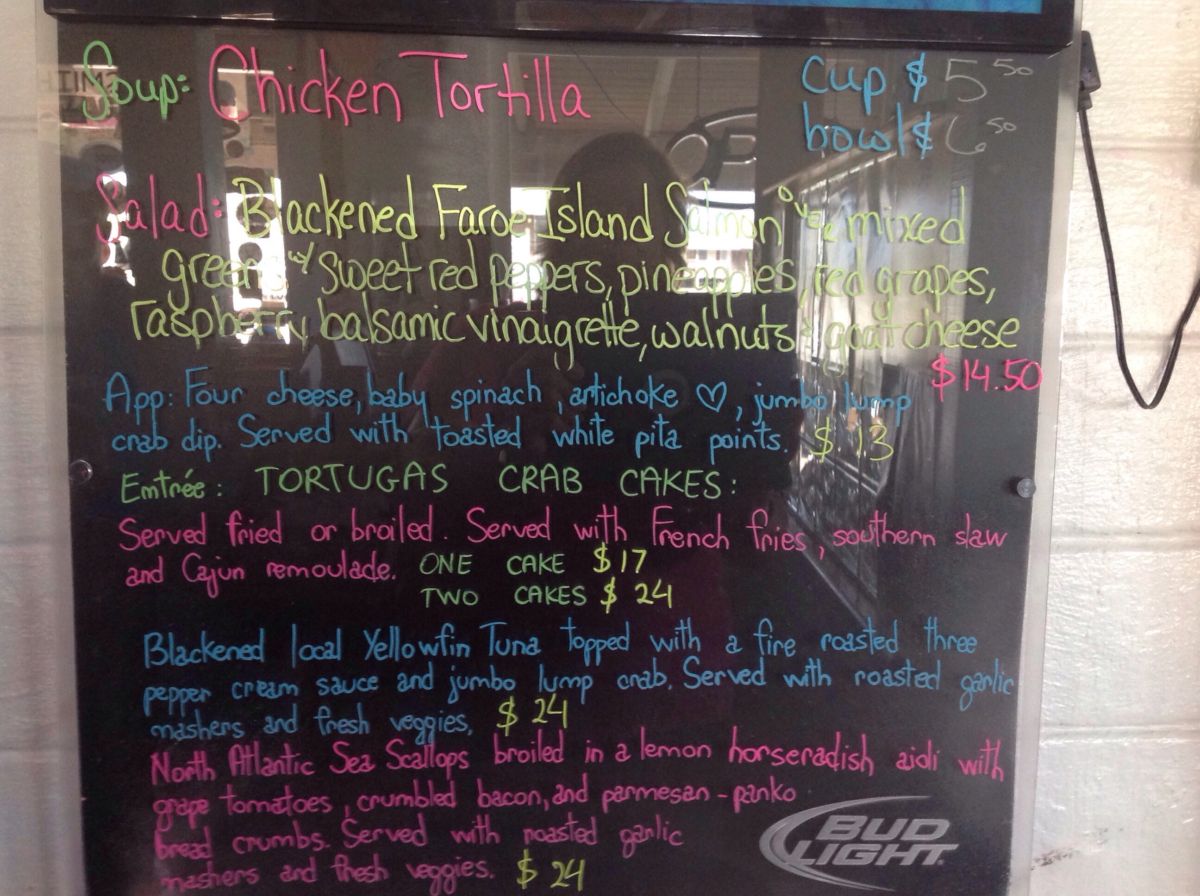 Soup: Chicken Tortilla Cup $ 5 50
bowl $ 6 50
Salad: Blackened Faroe Island Salmon over mixed
greens w/ sweet red peppers, pineapples, red grapes,
raspberry balsamic vinaigrette, walnuts & goat cheese
$14.50
App: Four cheese, baby spinach, artichoke ♡, jumbo lump
crab dip. Served with toasted white pita points. $ 13
Entrée: TORTUGAS CRAB CAKES:
Served fried or broiled. Served with French fries, southern slaw
and Cajun remoulade. ONE CAKE $17
TWO CAKES $ 24
Blackened local Yellowfin Tuna topped with a fire roasted three
pepper cream sauce and jumbo lump crab. Served with roasted garlic
mashers and fresh veggies. $ 24
North Atlantic Sea Scallops broiled in a lemon horseradish aioli with
grape tomatoes, crumbled bacon, and parmesan-panko
bread crumbs. Served with roasted garlic
mashers and fresh veggies. $ 24
BUD
LIGHT